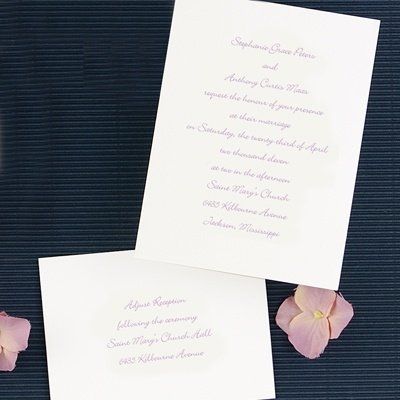 Stephanie Grace Peters
and
Anthony Curtis Maas
request the honour of your presence
at their marriage
on Saturday, the twenty-third of April
two thousand eleven
at two in the afternoon
Saint Mary's Church
6435 Kilbourne Avenue
Jackson, Mississippi
Adjust Reception
following the ceremony
Saint Mary's Church Hall
6435 Kilbourne Avenue